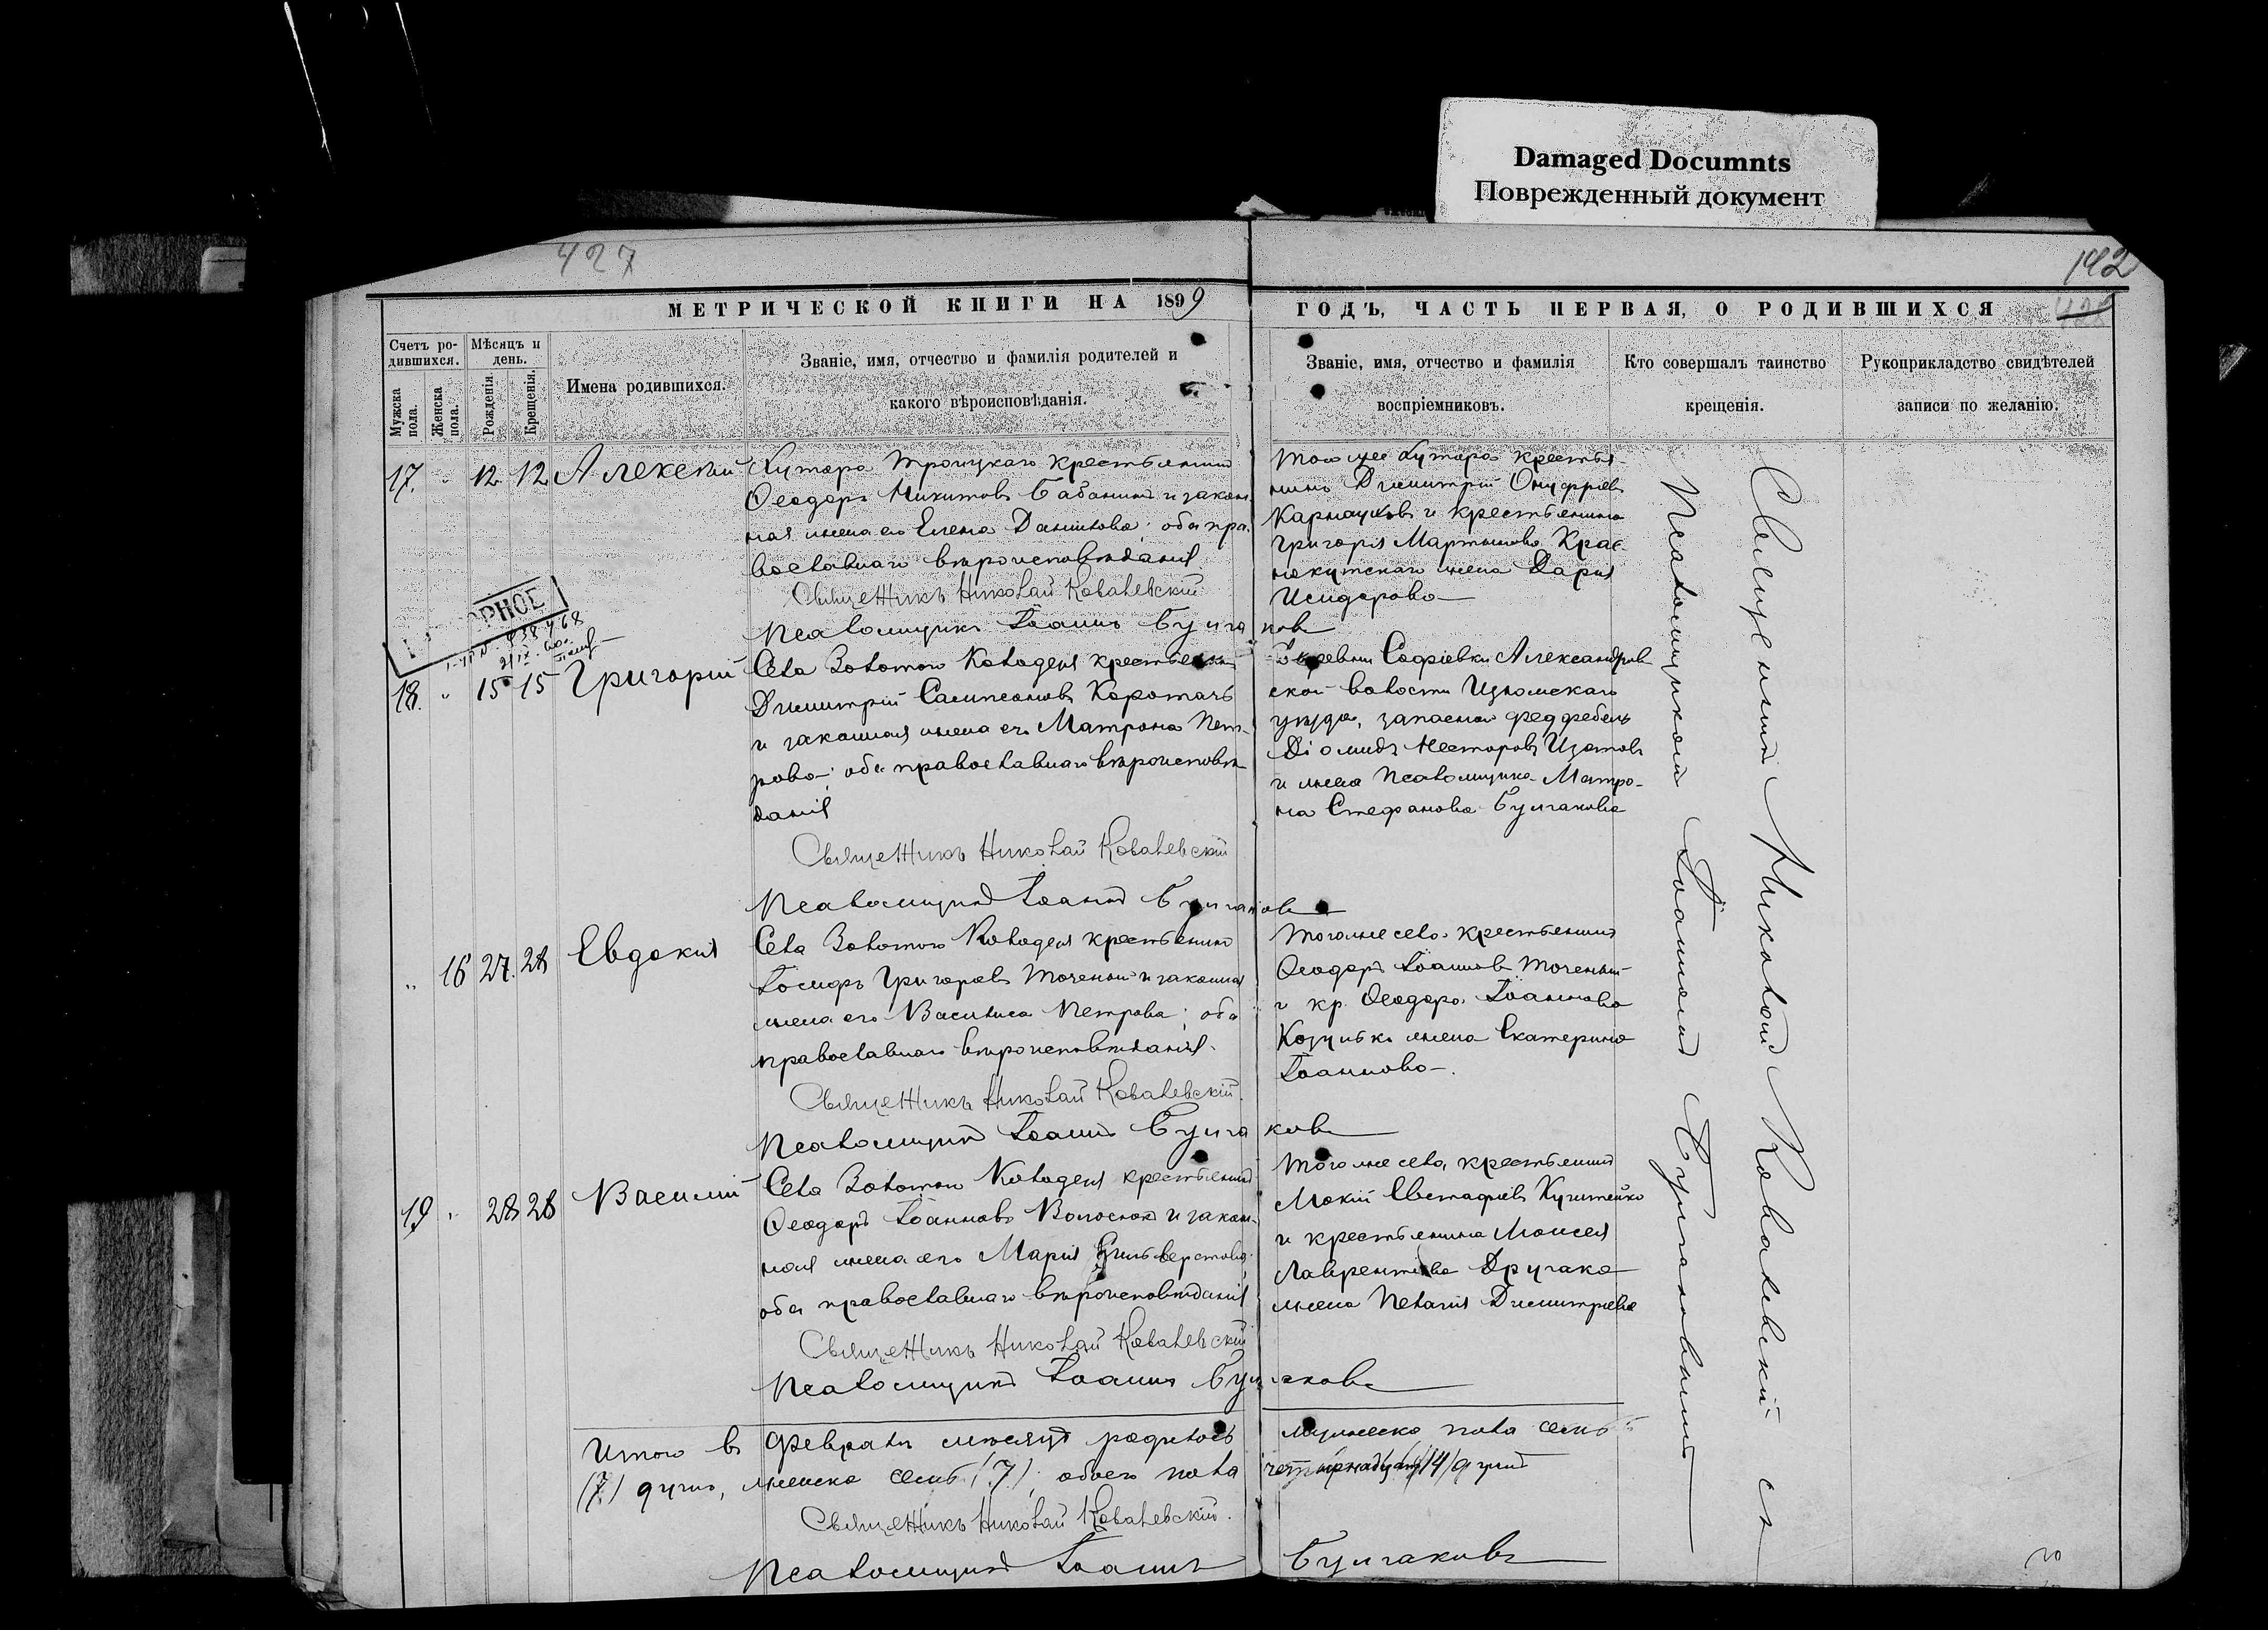 Damaged Documnts
Поврежденный документ
427
142
428
МЕТРИЧЕСКОЙ КНИГИ НА 1899
ГОДЪ, ЧАСТЬ ПЕРВАЯ, О РОДИВШИХСЯ
Счетъ ро-
дившихся.
Мужска
пола.
Женска
пола.
Мѣсяцъ и
день.
Рожденія.
Крещенія.
Имена родившихся.
Званіе, имя, отчество и фамилія родителей и
какого вѣроисповѣданія.
Званіе, имя, отчество и фамилія
воспріемниковъ.
Кто совершалъ таинство
крещенія.
Рукоприкладство свидѣтелей
записи по желанію.
17. " 12 12 Алексѣй
Хутора Троицкаго крестьянинъ
Ѳеодоръ Никитовъ Бабанинъ и закон-
ная жена его Елена Данилова; оба пра-
вославнаго вѣроисповѣданія.
Священникъ Николай Ковалевскій
Псаломщикъ Іоаннъ Булгаковъ
Того же хутора крестья-
нинъ Димитрій Онуфріевъ
Карнауховъ и крестьянина
Григорія Мартынова Крас-
нокутскаго жена Дарія
Исидорова
18. " 15 15 Григорій
Села Золотого Колодезя крестьянинъ
Димитрій Сампсоновъ Коротачъ
и законная жена его Матрона Пет-
рова; оба православнаго вѣроисповѣ-
данія
Священникъ Николай Ковалевскій
Псаломщикъ Іоаннъ Булгаковъ
деревни Софіевки Александров-
ской волости Изюмскаго
уѣзда, запасной фельдфебель
Діомидъ Несторовъ Изотовъ
и жена псаломщика Матро-
на Стефанова Булгакова
" 16 27. 28 Евдокія
Села Золотого Колодезя крестьянинъ
Іосифъ Григорьевъ Точеный и законная
жена его Василиса Петрова; оба
православнаго вѣроисповѣданія.
Священникъ Николай Ковалевскій.
Псаломщикъ Іоаннъ Булгаковъ
Того же села крестьянинъ
Ѳеодоръ Іоанновъ Точеный
и кр. Ѳеодора Іоаннова
Козулька жена Екатерина
Іоаннова.
19 " 28 28 Василій
Села Золотого Колодезя крестьянинъ
Ѳеодоръ Іоанновъ Волоснок и закон-
ная жена его Марія Сильверстова
оба православнаго вѣроисповѣданія
Священникъ Николай Ковалевскій
Псаломщикъ Іоаннъ Булгаковъ
Того же села, крестьянинъ
Мокій Евстафіевъ
и крестьянина Моисея
Лаврентіева
жена Пелагія Димитріева
Священникъ Николай Ковалевскій съ
Псаломщикомъ Іоанномъ Булгаковымъ
Итого въ Февралѣ мѣсяцѣ родилось мужеска пола семь
(7) душъ, женска семь (7), обоего пола четырнадцать (14) душъ
Священникъ Николай Ковалевскій.
Псаломщикъ Іоаннъ Булгаковъ